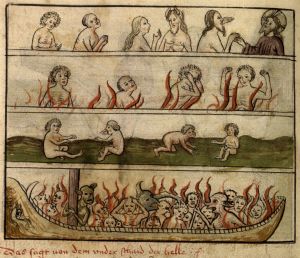 Das sagt von dem vnder schaid der helle